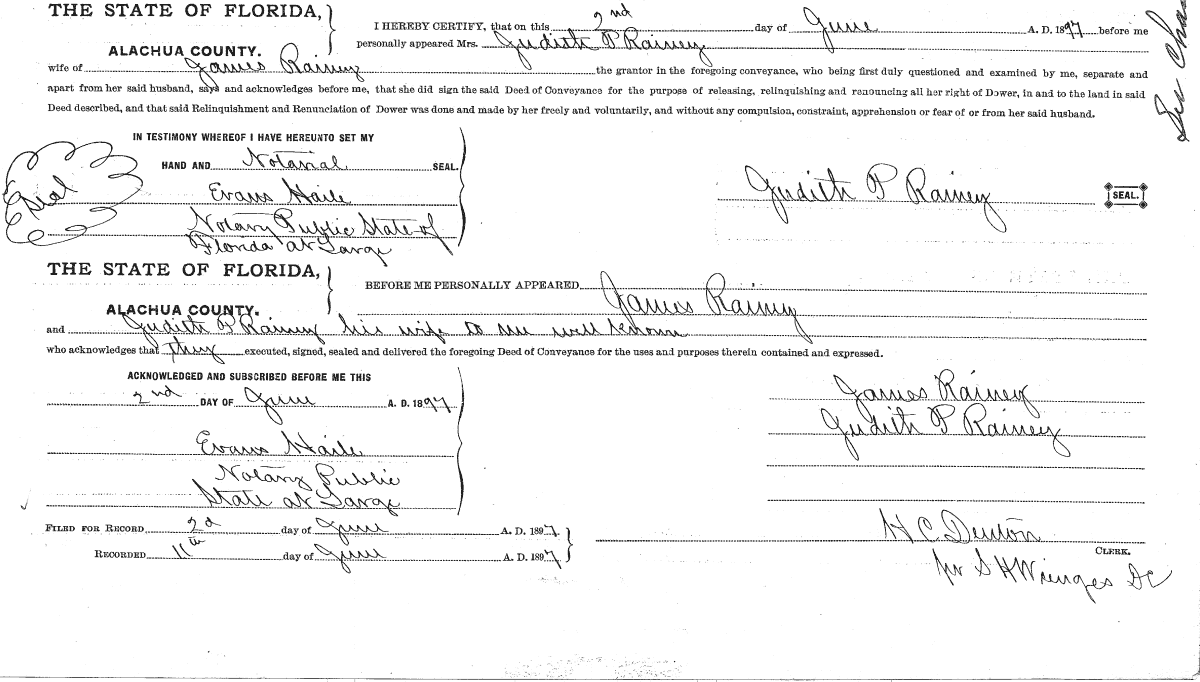 THE STATE OF FLORIDA,
ALACHUA COUNTY.
I HEREBY CERTIFY, that on this 2nd day of June A. D. 1897 before me
personally appeared Mrs. Judith P Rainey
wife of James Rainey the grantor in the foregoing conveyance, who being first duly questioned and examined by me, separate and
apart from her said husband, says and acknowledges before me, that she did sign the said Deed of Conveyance for the purpose of releasing, relinquishing and renouncing all her right of Dower, in and to the land in said
Deed described, and that said Relinquishment and Renunciation of Dower was done and made by her freely and voluntarily, and without any compulsion, constraint, apprehension or fear of or from her said husband.
IN TESTIMONY WHEREOF I HAVE HEREUNTO SET MY
HAND AND Notarial SEAL.
Seal
Evans Haile
Notary Public State of
Florida at Large
Judith P Rainey SEAL.
THE STATE OF FLORIDA,
ALACHUA COUNTY.
BEFORE ME PERSONALLY APPEARED James Rainey
and Judith P Rainey his wife to me well known
who acknowledges that they executed, signed, sealed and delivered the foregoing Deed of Conveyance for the uses and purposes therein contained and expressed.
ACKNOWLEDGED AND SUBSCRIBED BEFORE ME THIS
2nd DAY OF June A. D. 1897
Evans Haile
Notary Public
State at Large
James Rainey
Judith P Rainey
FILED FOR RECORD 2d day of June A. D. 1897
RECORDED 11th day of June A. D. 1897
H C Denton
CLERK.
per S H Wienges DC